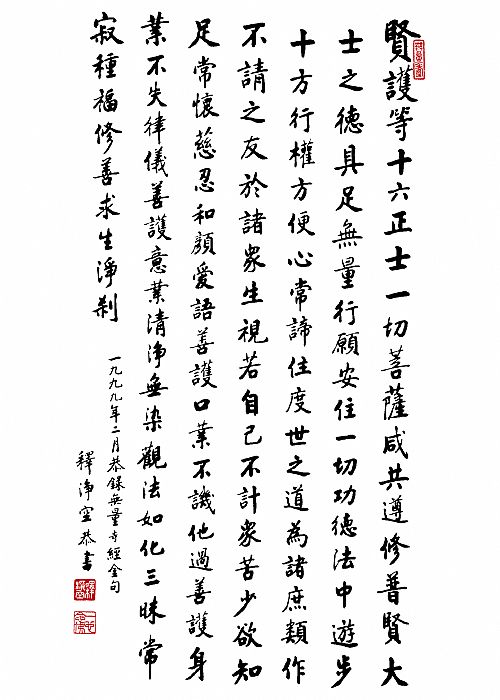 賢護等十六正士一切菩薩咸共遵修普賢大
士之德具足無量行願安住一切功德法中遊步
十方行權方便心常諦住度世之道為諸庶類作
不請之友於諸衆生視若自己不計衆苦少欲知
足常懷慈忍和顏愛語善護口業不譏他過善護身
業不失律儀善護意業清淨無染觀法如化三昧常
寂種福修善求生淨剎
一九九九年二月恭錄無量壽經金句
釋淨空恭書